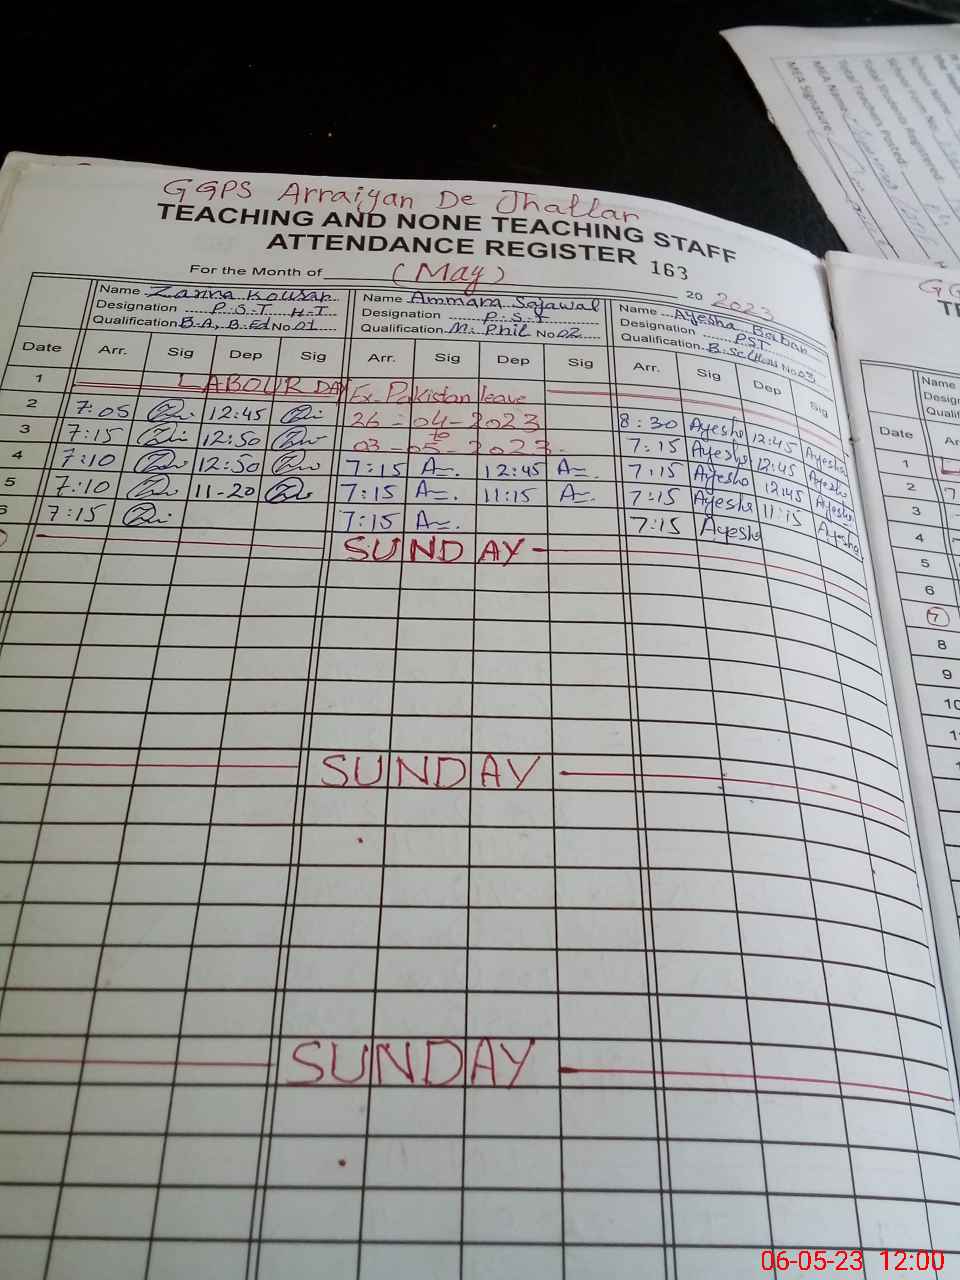 GGPS Arraiyan De Jhallar
TEACHING AND NONE TEACHING STAFF
ATTENDANCE REGISTER 163
For the Month of (May) 20 2023
Name Zarina Kousar Name Ammara Sajawal Name Ayesha Baban
Designation P.S.T H-T Designation P.S.T Designation PST
Qualification B.A, B.Ed No 01 Qualification M. Phil No 02 Qualification No 03
Date Arr. Sig Dep Sig Arr. Sig Dep Sig Arr. Sig Dep Sig
1 LABOUR DAY Ex. Pakistan leave
2 7:05 12:45 26-04-2023 8:30 Ayesha 12:45 Ayesha
to
3 7:15 12:50 03-05-2023 7:15 Ayesha 12:45 Ayesha
4 7:10 12:50 7:15 12:45 7:15 Ayesha 12:45 Ayesha
5 7:10 11-20 7:15 11:15 7:15 Ayesha 11:15 Ayesha
6 7:15 7:15 7:15 Ayesha
SUNDAY
SUNDAY
SUNDAY
MEA Name
MEA Signature
Total Teachers Posted
Total Students Registered
School Form No.
School Name
Name
Date
1
2
3
4
5
6
7
8
9
10
06-05-23 12:00